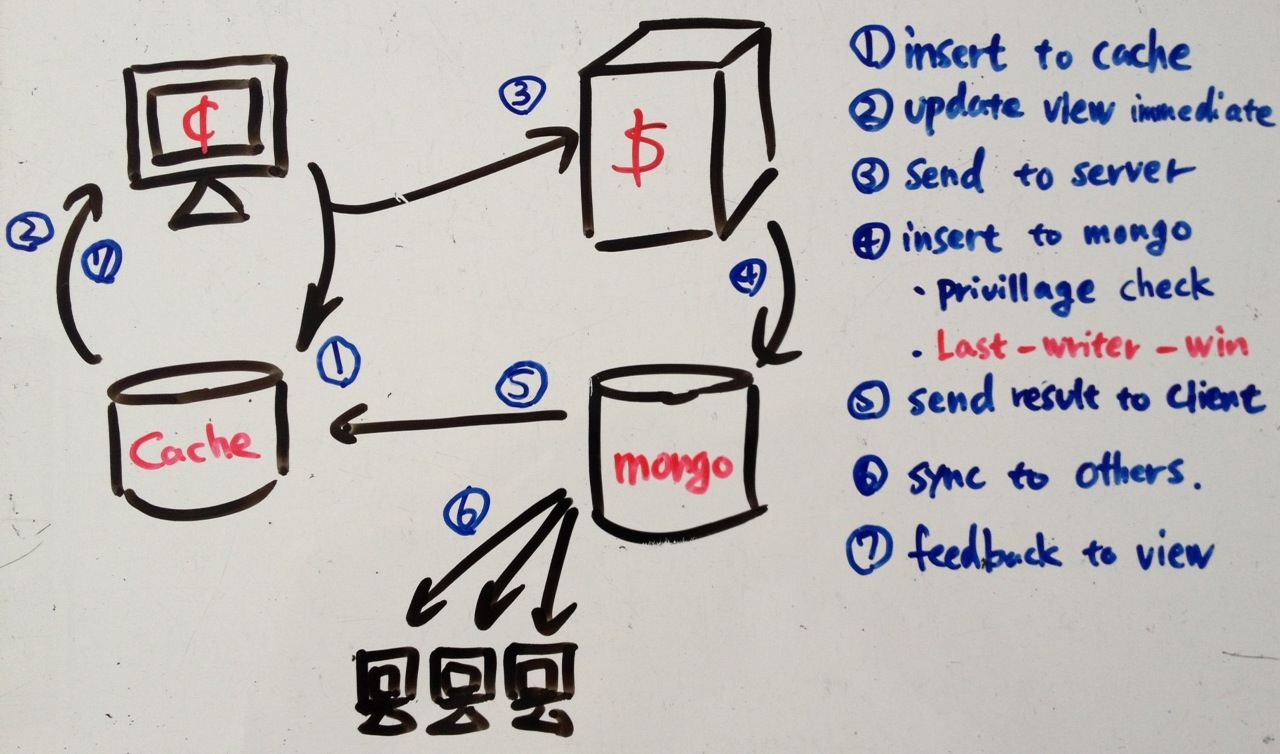 ¢
$
③
②
⑦
④
①
⑤
Cache
mongo
⑥
① insert to cache
② update view immediate
③ send to server
④ insert to mongo
• privillage check
• Last-writer-win
⑤ send result to client
⑥ sync to others.
⑦ feedback to view